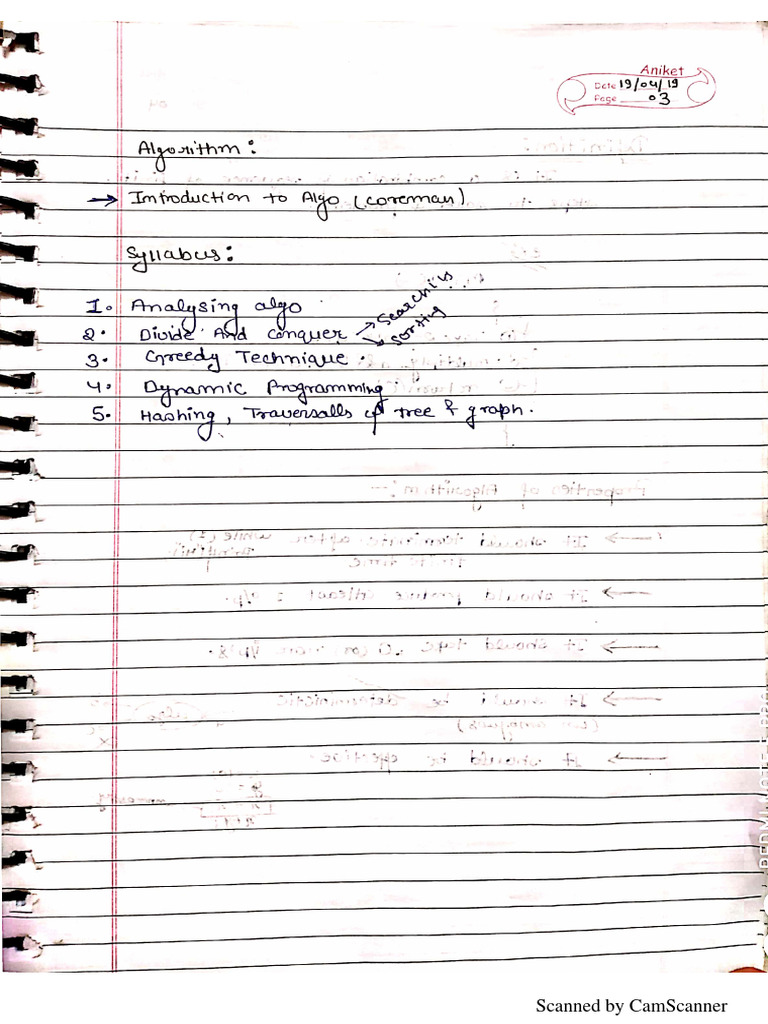 Aniket
Date 19/04/19
Page 03
Algorithm:
→ Introduction to Algo (coreman)
Syllabus:
1. Analysing algo
2. Divide And Conquer → Searching
→ Sorting
3. Greedy Technique.
4. Dynamic Programming
5. Hashing, Traversalls of tree & graph.
Scanned by CamScanner